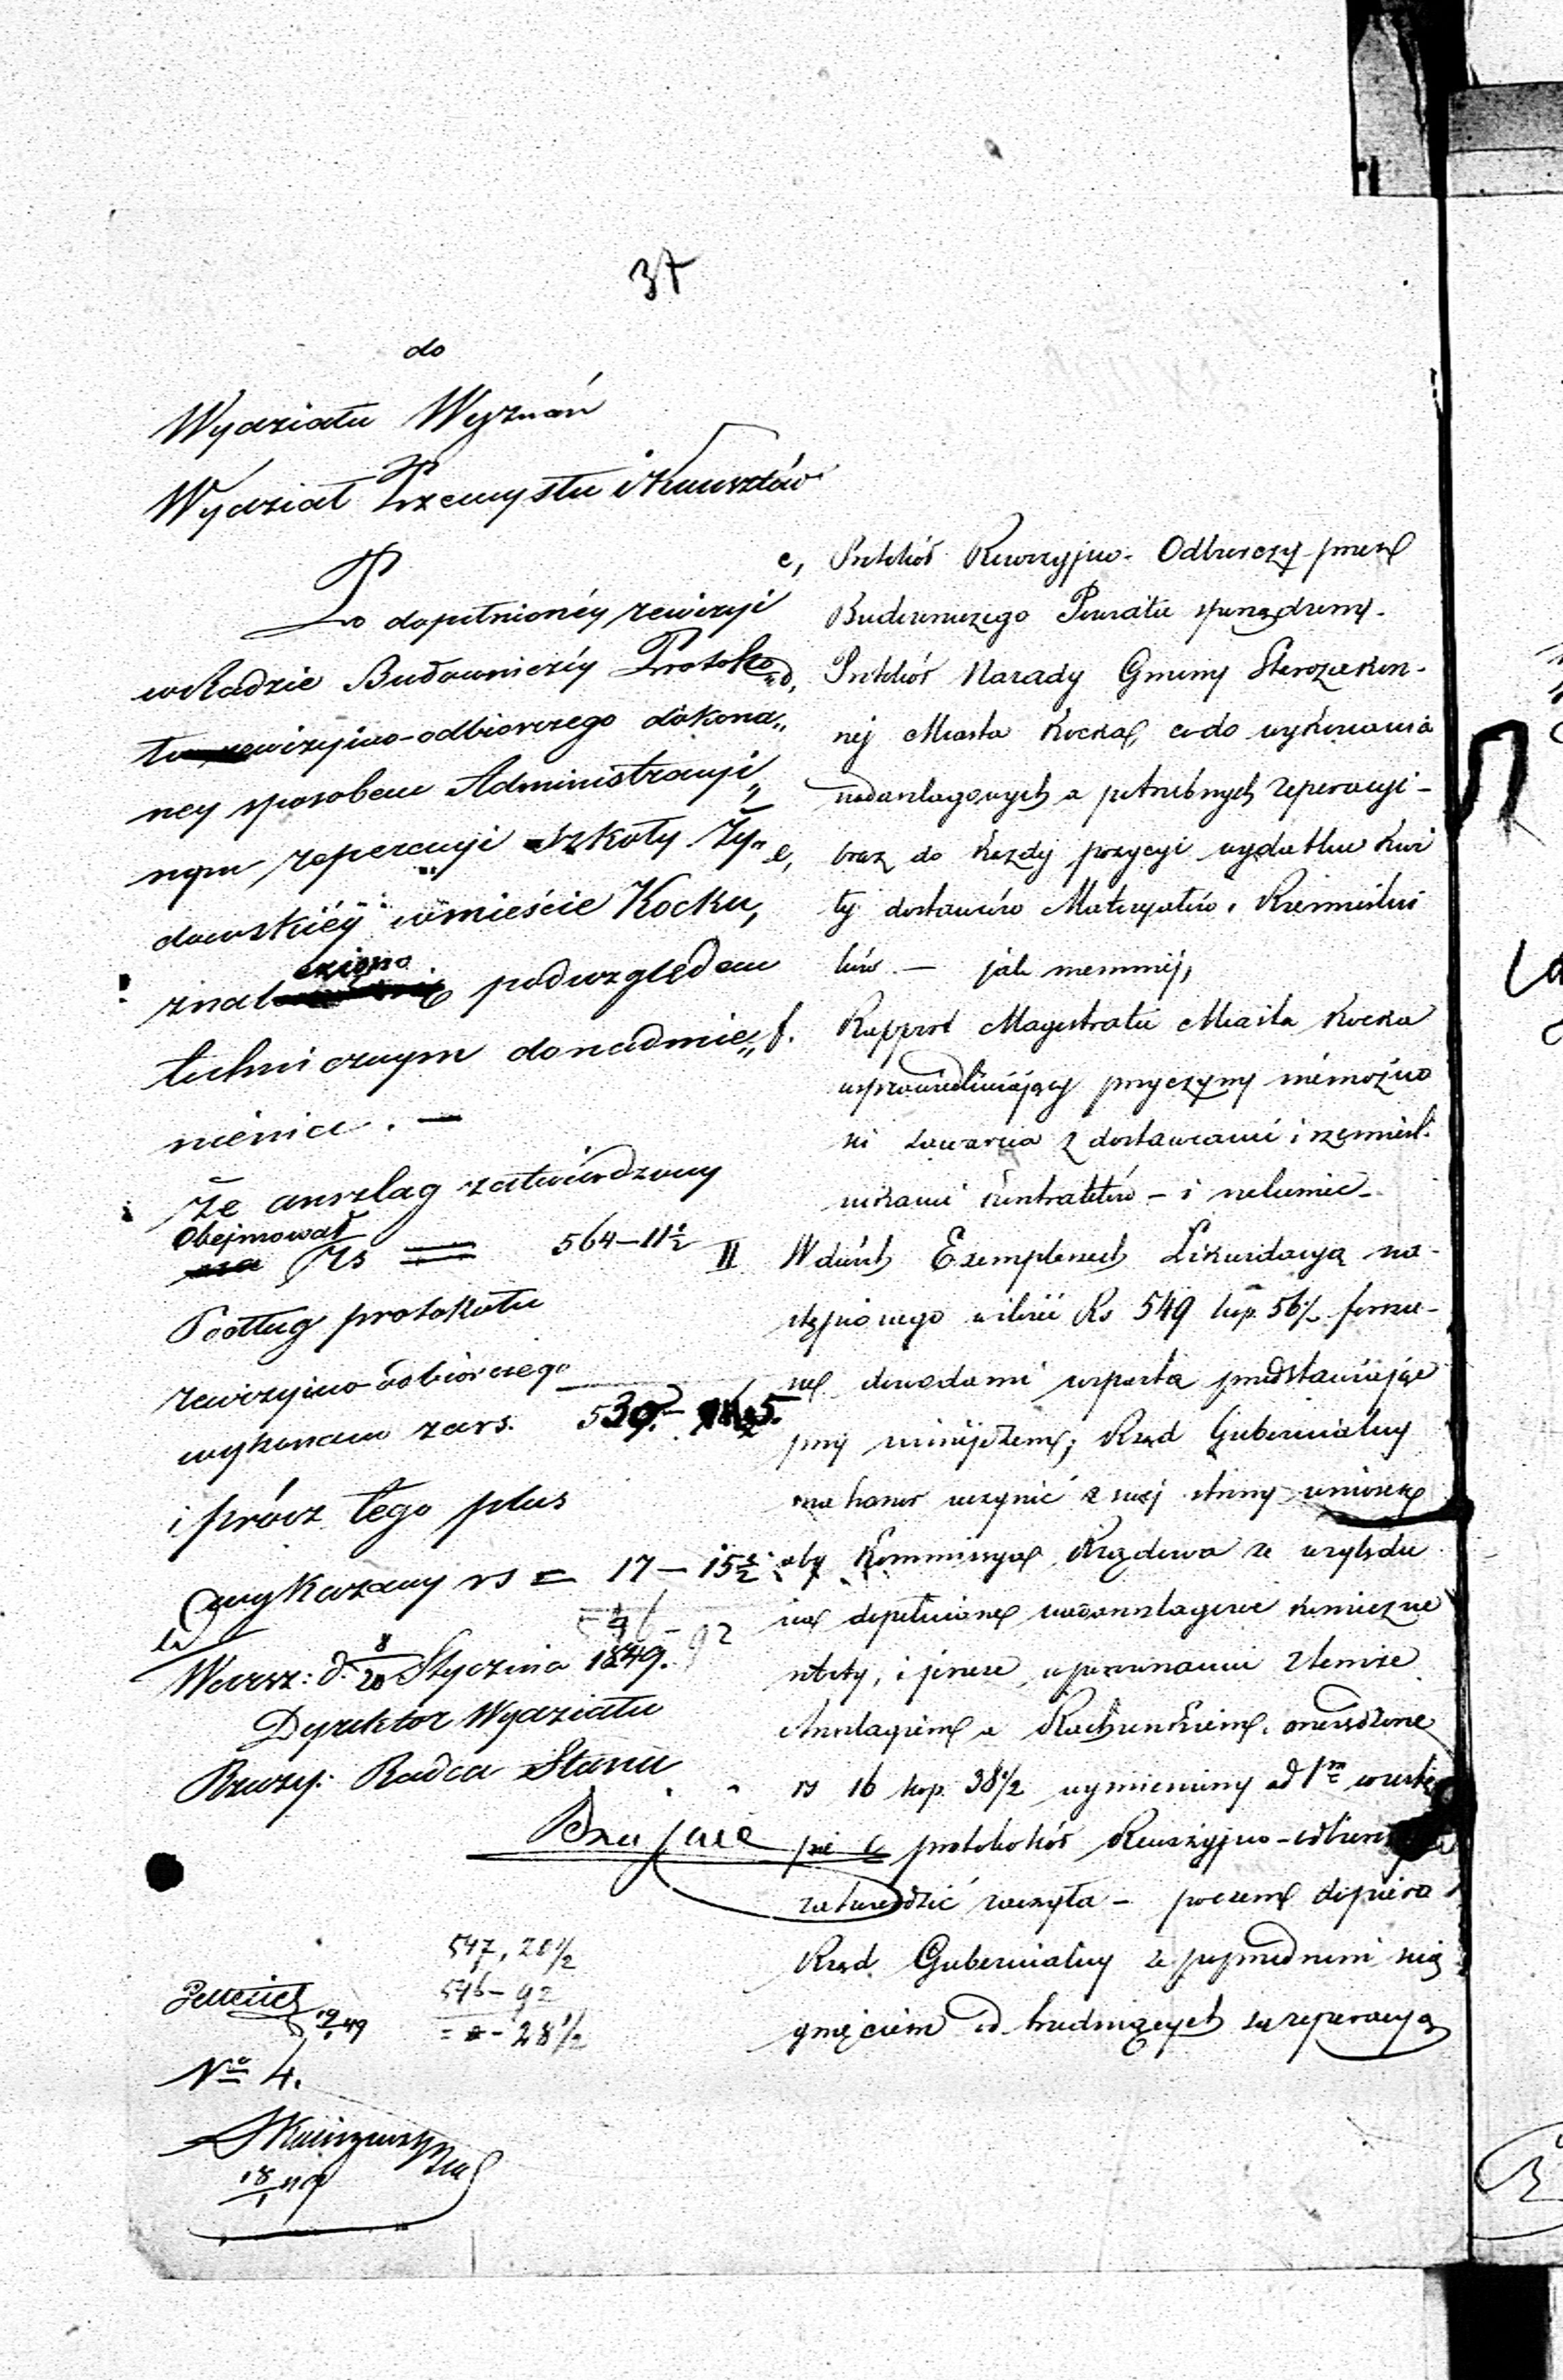 37
do
Wydziału Wyznań
Wydział Przemysłu i Kunsztów
Po dopełnionéy rewizyi
w Radzie Budowniczéy Protoko„
łu rewizyino-odbiorczego dokona„
ney sposobem Administracyi„
nym reperacyi Szkoły Ży„
dowskiéy w mieście Kocku,
znaleziono pod względem
technicznym do nadmie„
nienia. —
Że anszlag zatwierdzony
Obejmował
Rs = 564–11½
Podług protokułu
rewizyino odbiorczego
wykonano za rs. 539.
i prócz tego plus
wykazany rs = 17 – 15½
546 – 92
Warsz: d. 8/20 Stycznia 1849.
Dyrektor Wydziału
Rzeczy: Radca Stanu
547, 20½
546 – 92
= " – 28½
19/1 49
No 4.
18/1 49
c, Protokół Rewizyjno-Odbiorczy przez
Budowniczego Powiatu sporządzony.
d, Protokół Narady Gminy Starozakon-
nej Miasta Kocka, co do wykonania
nadanszlagowych a potrzebnych reperacyi –
e, oraz do każdej pozycyi wydatku kwi
ty dostawców Materyałów i Rzemieślni
ków. — jak niemniéj,
f. Rapport Magistratu Miasta Kocka
usprawiedliwiający przyczyny niemożno
ści zawarcia z dostawcami i rzemieśl.
nikami kontraktów – i nakoniec –
II W dwóch Exemplarzach Likwidacyą na-
stąpionego w ilości Rs 549 kop. 56½ formal-
nie dowodami wspartą przedstawiając
przy niniejszem, Rząd Gubernialny
ma honor uczynić z swej strony wniosek
aby Kommissya Rządowa ze względu
na dopełnione nadanszlagowe konieczne
roboty, i przez porównanie z temże
Anszlagiem a Rachunkiem, oszczędzone
rs 16 kop. 38½ wymieniony ad 1m w ustę
pie c protokół Rewizyjno-odbiorczy
zatwierdzić raczyła – poczem dopiero
Rząd Gubernialny za poprzedniem ścią
gnięciem od trudniących się reperacyą